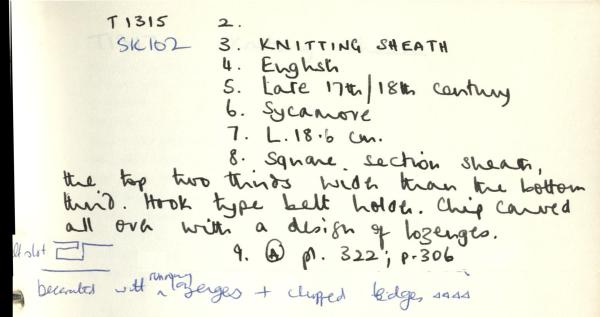 T1315 2.
SK102 3. KNITTING SHEATH
4. English
5. Late 17th/18th century
6. Sycamore
7. L. 18.6 cm.
8. Square section sheath,
the top two thirds wider than the bottom
third. Hook type belt holder. Chip carved
all over with a design of lozenges.
slot 9. (A) pl. 322; p.306
Decorated with running lozenges + chipped edges